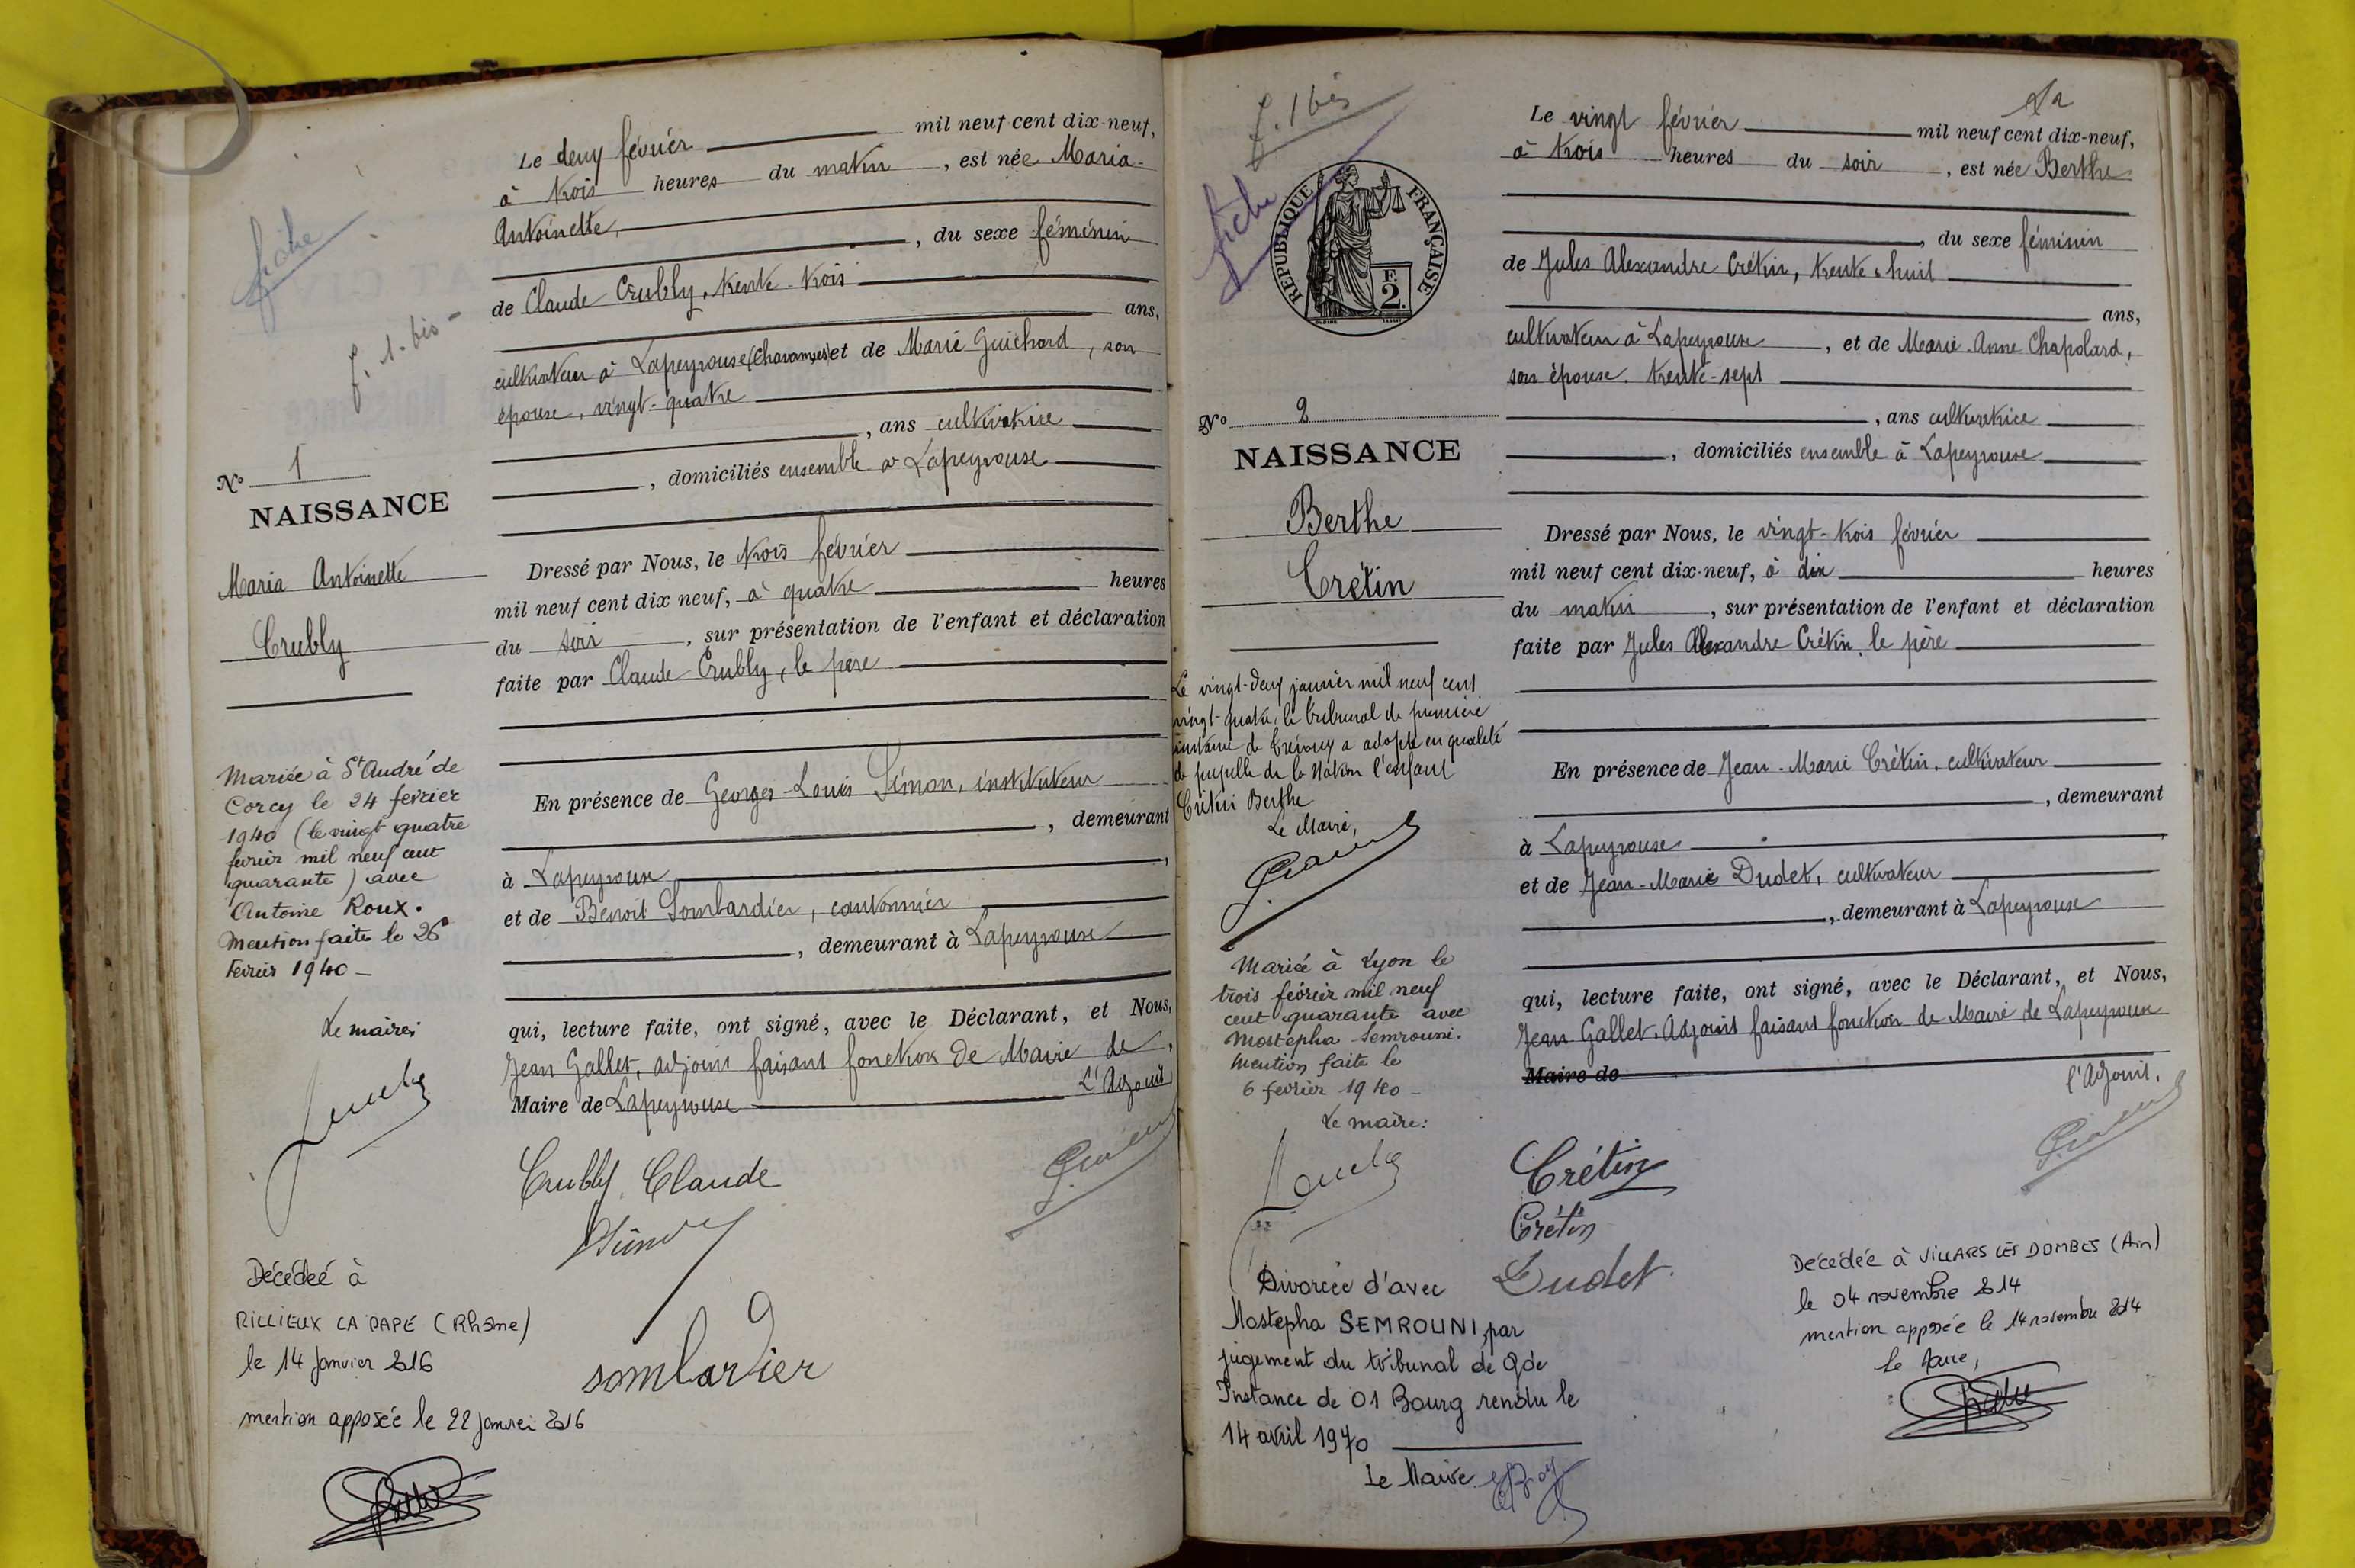 fiche
f. 1. bis -
Nº 1
NAISSANCE
Maria Antoinette
Crubly
Mariée à St André de
Corcy le 24 fevrier
1940 (le vingt quatre
fevrier mil neuf cent
quarante) avec
Antoine Roux.
Mention faite le 26
Fevrier 1940 -
Le maire:
Décédeé à
RILLIEUX LA PAPE (Rhône)
le 14 Janvier 2016
mention apposée le 22 janvier 2016
Le deux février mil neuf cent dix-neuf,
à trois heures du matin, est née Maria-
Antoinette,
, du sexe féminin
de Claude Crubly, trente-trois
ans,
cultivateur à Lapeyrouse (Chavannes) et de Marie Guichard, son
épouse, vingt-quatre
, ans cultivatrice
, domiciliés ensemble à Lapeyrouse
Dressé par Nous, le trois février
mil neuf cent dix neuf, à quatre heures
du soir, sur présentation de l'enfant et déclaration
faite par Claude Crubly, le père
En présence de Georges-Louis Simon, instituteur
, demeurant
à Lapeyrouse,
et de Benoit Sombardier, cantonnier
, demeurant à Lapeyrouse
qui, lecture faite, ont signé, avec le Déclarant, et Nous,
Jean Gallet, adjoint faisant fonction de Maire de,
Maire de Lapeyrouse L'Adjoint
Crubly Claude
Simon
sombardier
f. 1 bis
fiche
RÉPUBLIQUE FRANÇAISE
F.
2.
Nº 2
NAISSANCE
Berthe
Crétin
Le vingt-deux janvier mil neuf cent
vingt-quatre, le tribunal de première
instance de Trévoux a adopté en qualité
de pupille de la Nation l'enfant
Crétin Berthe
Le Maire,
Mariée à Lyon le
trois février mil neuf
cent quarante avec
Mostepha Semrouni.
Mention faite le
6 fevrier 1940 -
Le maire:
Divorcée d'avec
Mostepha SEMROUNI, par
jugement du tribunal de Gde
Instance de 01 Bourg rendu le
14 avril 1970
Le Maire
Le vingt février mil neuf cent dix-neuf,
à trois heures du soir, est née Berthe
, du sexe féminin
de Jules Alexandre Crétin, trente-huit
ans,
cultivateur à Lapeyrouse, et de Marie-Anne Chapolard,
son épouse. trente-sept
, ans cultivatrice
, domiciliés ensemble à Lapeyrouse
Dressé par Nous, le vingt-trois février
mil neuf cent dix-neuf, à dix heures
du matin, sur présentation de l'enfant et déclaration
faite par Jules Alexandre Crétin, le père
En présence de Jean-Marie Crétin, cultivateur
, demeurant
à Lapeyrouse
et de Jean-Marie Dudet, cultivateur
, demeurant à Lapeyrouse
qui, lecture faite, ont signé, avec le Déclarant, et Nous,
Jean Gallet, Adjoint faisant fonction de Maire de Lapeyrouse
Maire de
l'Adjoint.
Crétin
Crétin
Dudet
Décédée à VILLARS LES DOMBES (Ain)
le 04 novembre 2014
mention apposée le 14 novembre 2014
Le Maire,